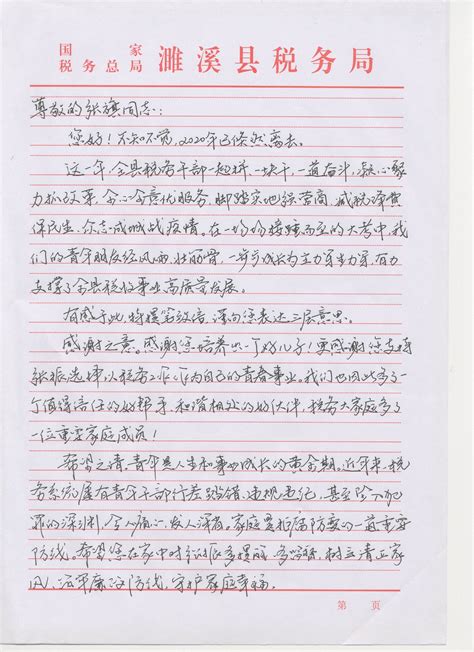 国家
税务总局 濉溪县税务局
尊敬的张旗同志：
您好！不知不觉，2020年已倏然离去。
这一年，全县税务干部一起拼、一块干，一道奋斗，凝心聚
力抓改革，全心全意优服务，脚踏实地强营商，减税降费
保民生，众志成城战疫情。在一场场接踵而至的大考中，我
们的青年朋友经风雨、壮筋骨，一步步成长为主力军生力军，有力
支撑了全县税收事业高质量发展。
有感于此，特撰笔致信，深向您表达三层意思。
感谢之意。感谢您培养出一个好儿子！更感谢您支持
张振选择以税务工作作为自己的青春事业。我们也因此多了一
个值得信任的好帮手，和谐相处的好伙伴，税务大家庭多了
一位重要家庭成员！
希望之请。青年是人生和事业成长的黄金期。近年来，税
务系统屡有青年干部行差踏错、违规违纪，甚至陷入犯
罪的深渊，令人痛心、发人深省。家庭是拒腐防变的一道重要
防线。希望您在家中对张振多提醒、多监督，树立清正家
风，筑牢廉洁防线，守护家庭幸福。
第 页